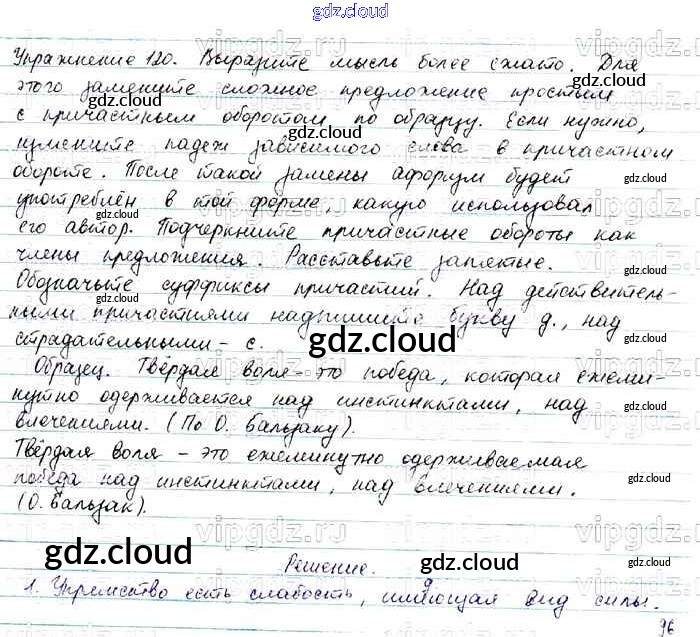 gdz.cloud
Упражнение 120. Выразите мысль более сжато. Для
этого замените сложное предложение простым
с причастным оборотом по образцу. Если нужно,
измените падеж зависимого слова в причастном
обороте. После такой замены афоризм будет
употреблён в той форме, какую использовал
его автор. Подчеркните причастные обороты как
члены предложения. Расставьте запятые.
Обозначьте суффиксы причастий. Над действитель-
ными причастиями надпишите букву д., над
страдательными - с.
gdz.cloud
Образец. Твёрдая воля - это победа, которая ежеми-
нутно одерживается над инстинктами, над
влечениями. (По О. Бальзаку).
Твёрдая воля - это ежеминутно одерживаемая
победа над инстинктами, над влечениями.
(О. Бальзак).
gdz.cloud
Решение.
д
1. Упрямство есть слабость, имеющая вид силы.
96